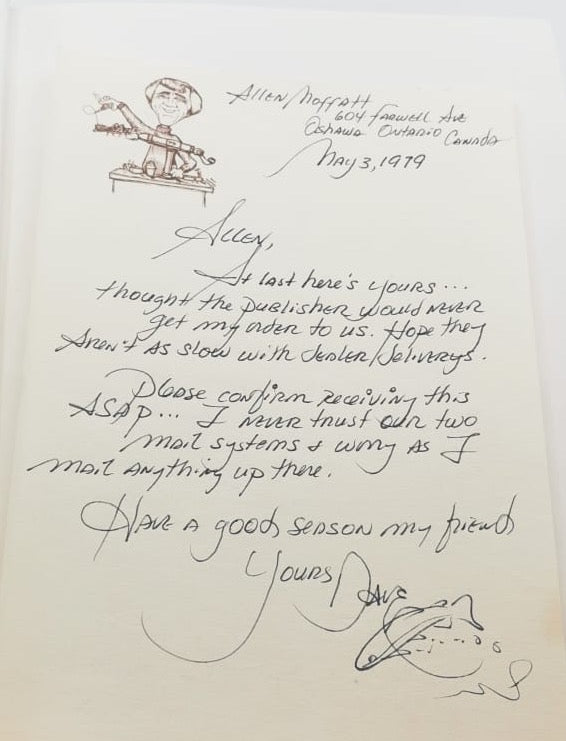 Allen Moffatt
604 Farwell Ave
Oshawa Ontario Canada
May 3, 1979
Allen,
At last here's yours...
thought the publisher would never
get my order to us. Hope they
aren't as slow with dealer deliverys.
Please confirm receiving this
ASAP... I never trust our two
mail systems & worry as I
mail anything up there.
Have a good season my friend
Yours Dave